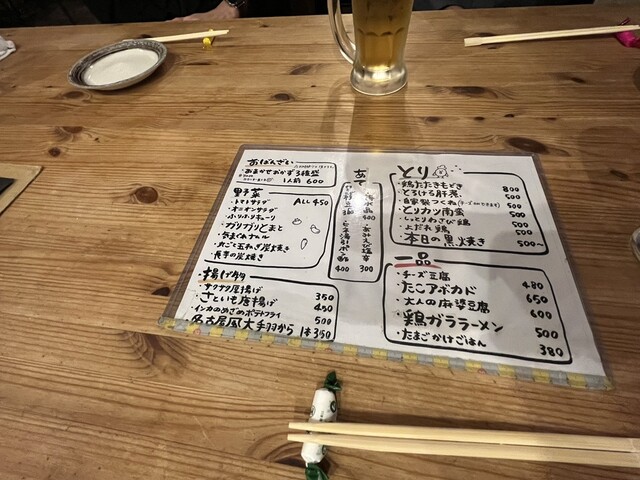 おばんざい
・おまかせおかず3種盛
1人前 600
野菜 ALL 450
・トマトサラダ
・オニオンサラダ
・ポリポリキューリ
・ガリガリとまと
・丸ごと玉ねぎ炭焼き
・長芋の炭焼き
揚げ物
・サクサク唐揚げ 350
・さといも唐揚げ 450
・インカのめざめポテトフライ 500
・名古屋風大手羽から 1本 350
400 300
とり
・鶏たたきもどき 800
・とろける肝煮 500
・自家製つくね 500
・とりカツ南蛮 500
・しっとりわさび鶏 500
・よだれ鶏 500
・本日の黒焼き 500~
一品
・チーズ豆腐 480
・たこアボカド 650
・大人の麻婆豆腐 600
・鶏ガララーメン 500
・たまごかけごはん 380